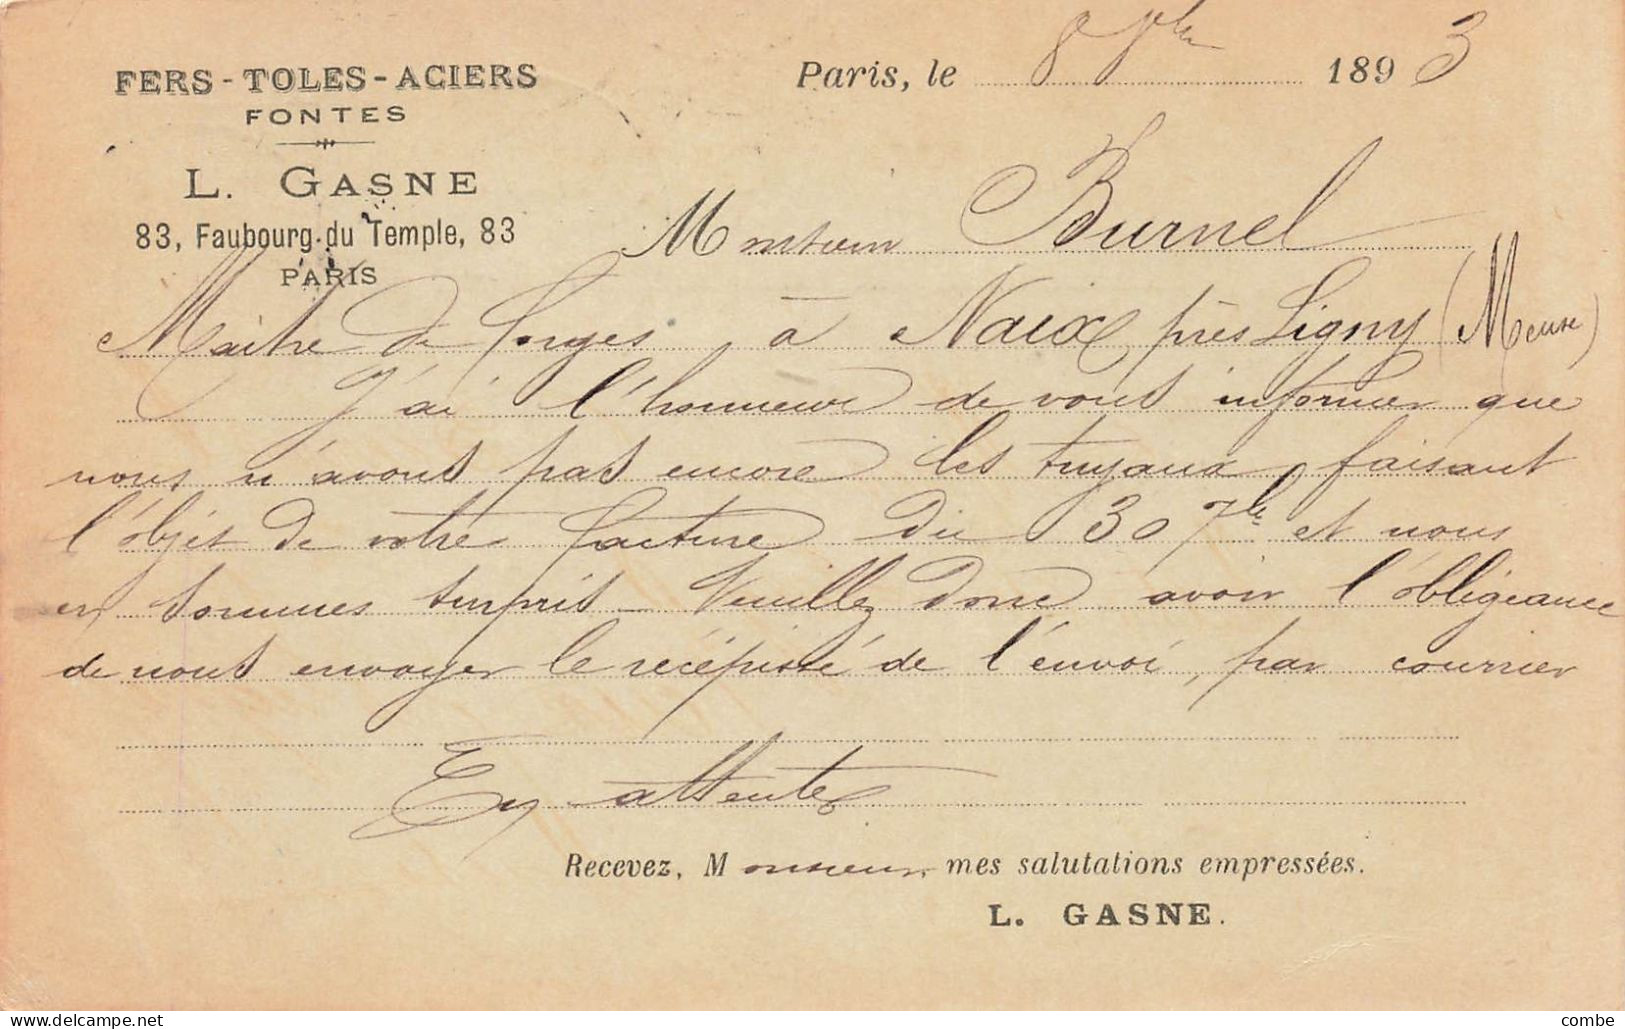 FERS - TOLES - ACIERS
FONTES
L. GASNE
83, Faubourg du Temple, 83
PARIS
Paris, le 8 8bre 1893
Monsieur Burnel
Maître de forges à Naix près Ligny (Meuse)
J'ai l'honneur de vous informer que
nous n'avons pas encore les tuyaux faisant
l'objet de votre facture du 30 7bre et nous
en sommes surpris - Veuillez donc avoir l'obligeance
de nous envoyer le récépissé de l'envoi, par courrier
En attente
Recevez, Monsieur, mes salutations empressées.
L. GASNE.
delcampe.net
combe